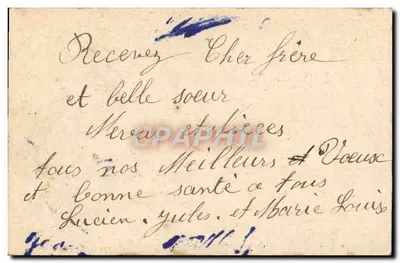 Recevez Cher frère
et belle soeur
Neveu et Nièces
tous nos Meilleurs et Voeux
et bonne santé a tous
Lucien. Jules. et Marie Louise